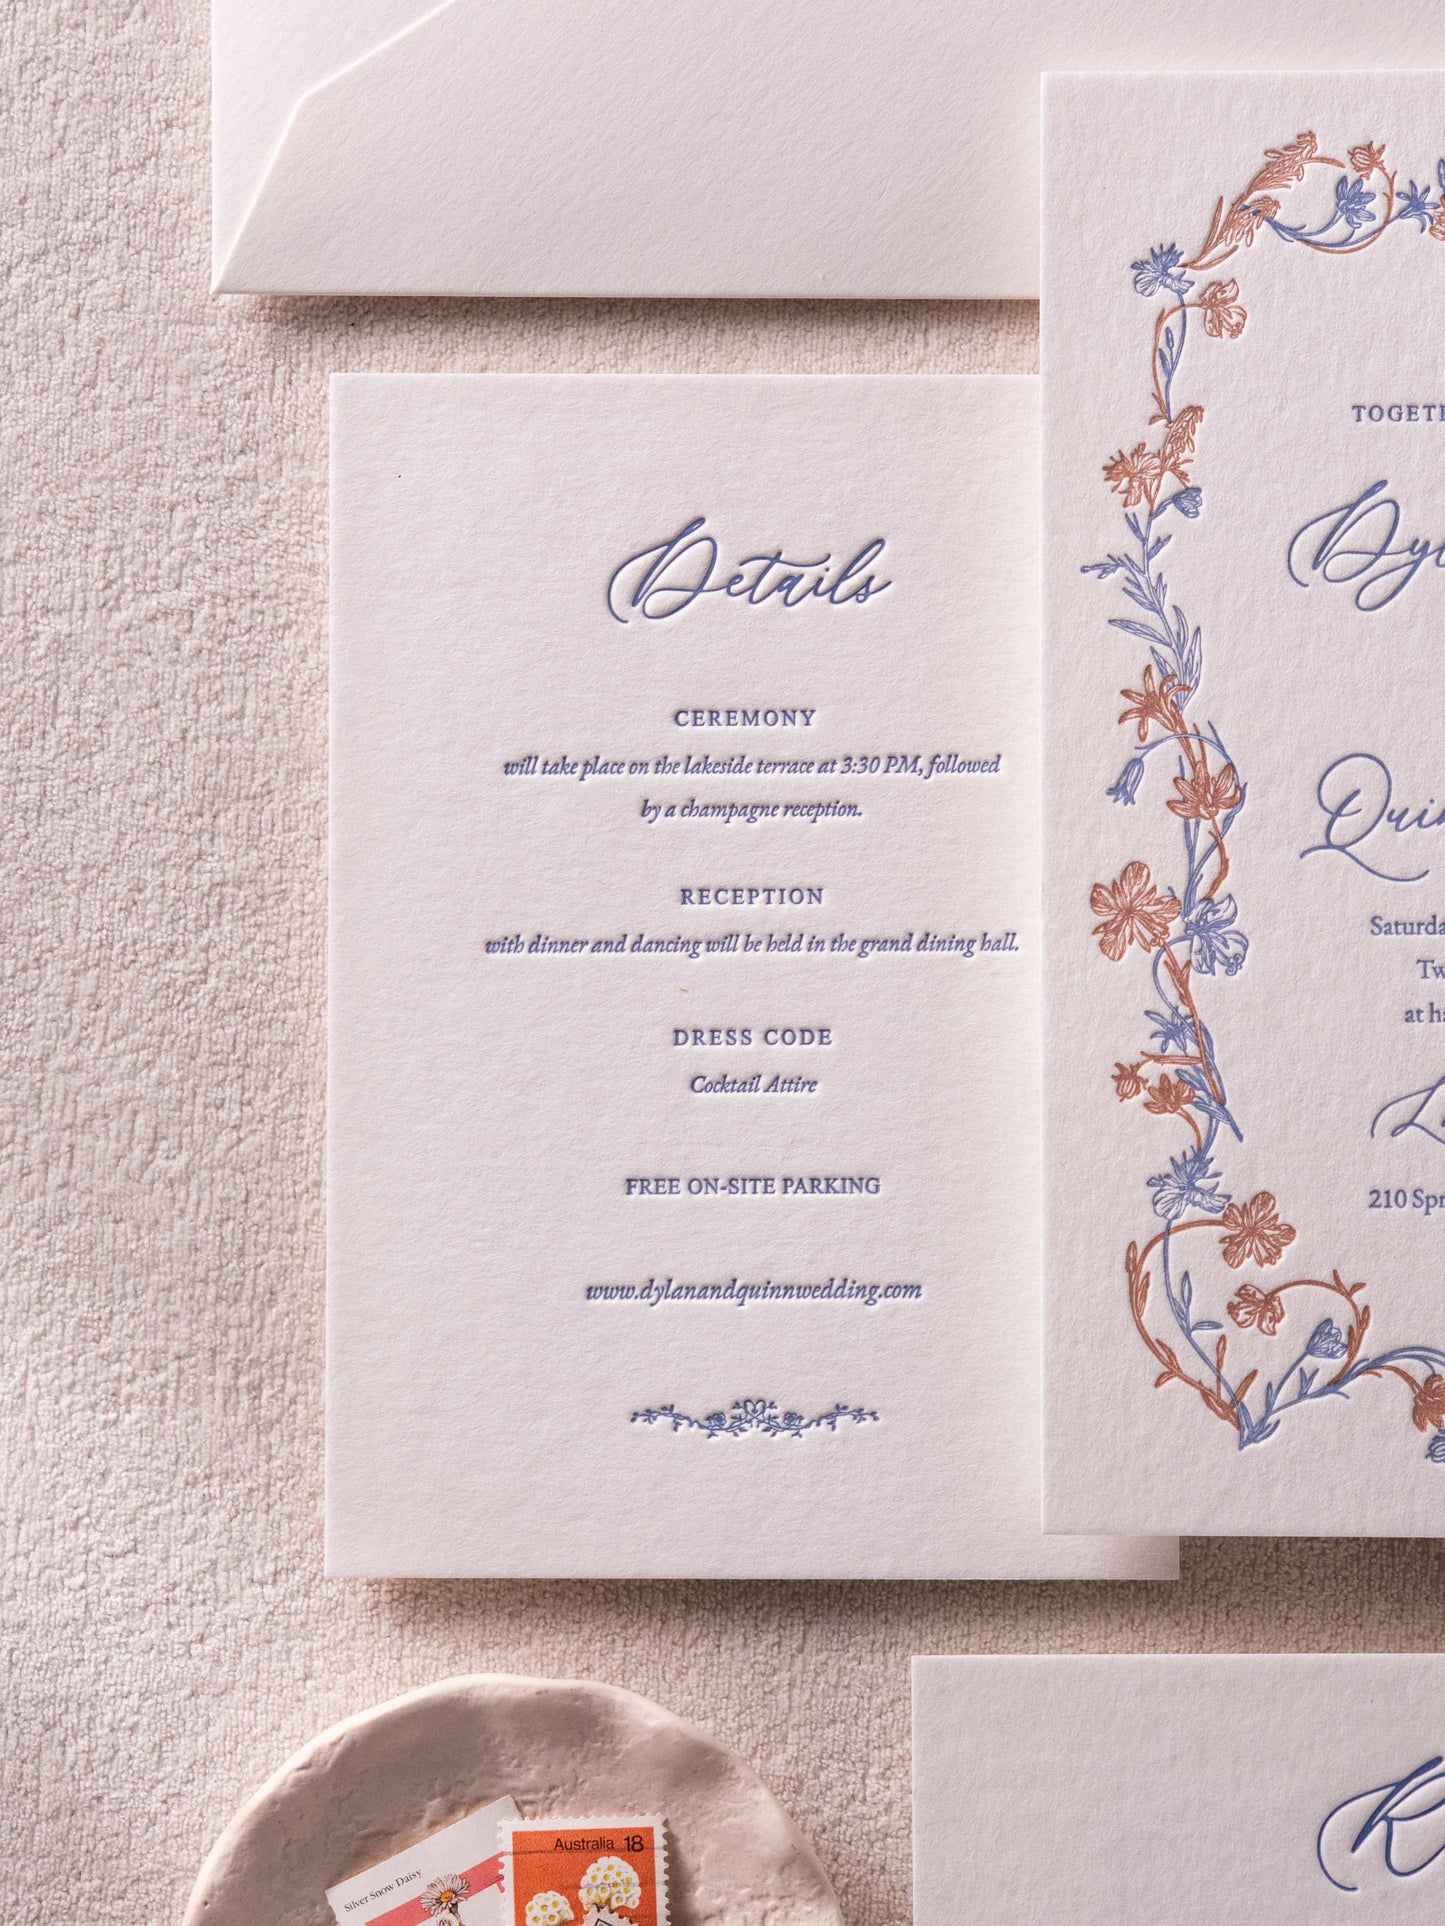 Details
CEREMONY
will take place on the lakeside terrace at 3:30 PM, followed
by a champagne reception.
RECEPTION
with dinner and dancing will be held in the grand dining hall.
DRESS CODE
Cocktail Attire
FREE ON-SITE PARKING
www.dylanandquinnwedding.com
TOGETH
Dyl
Quin
Saturda
Tw
at ha
210 Spr
R
Silver Snow Daisy
Australia 18